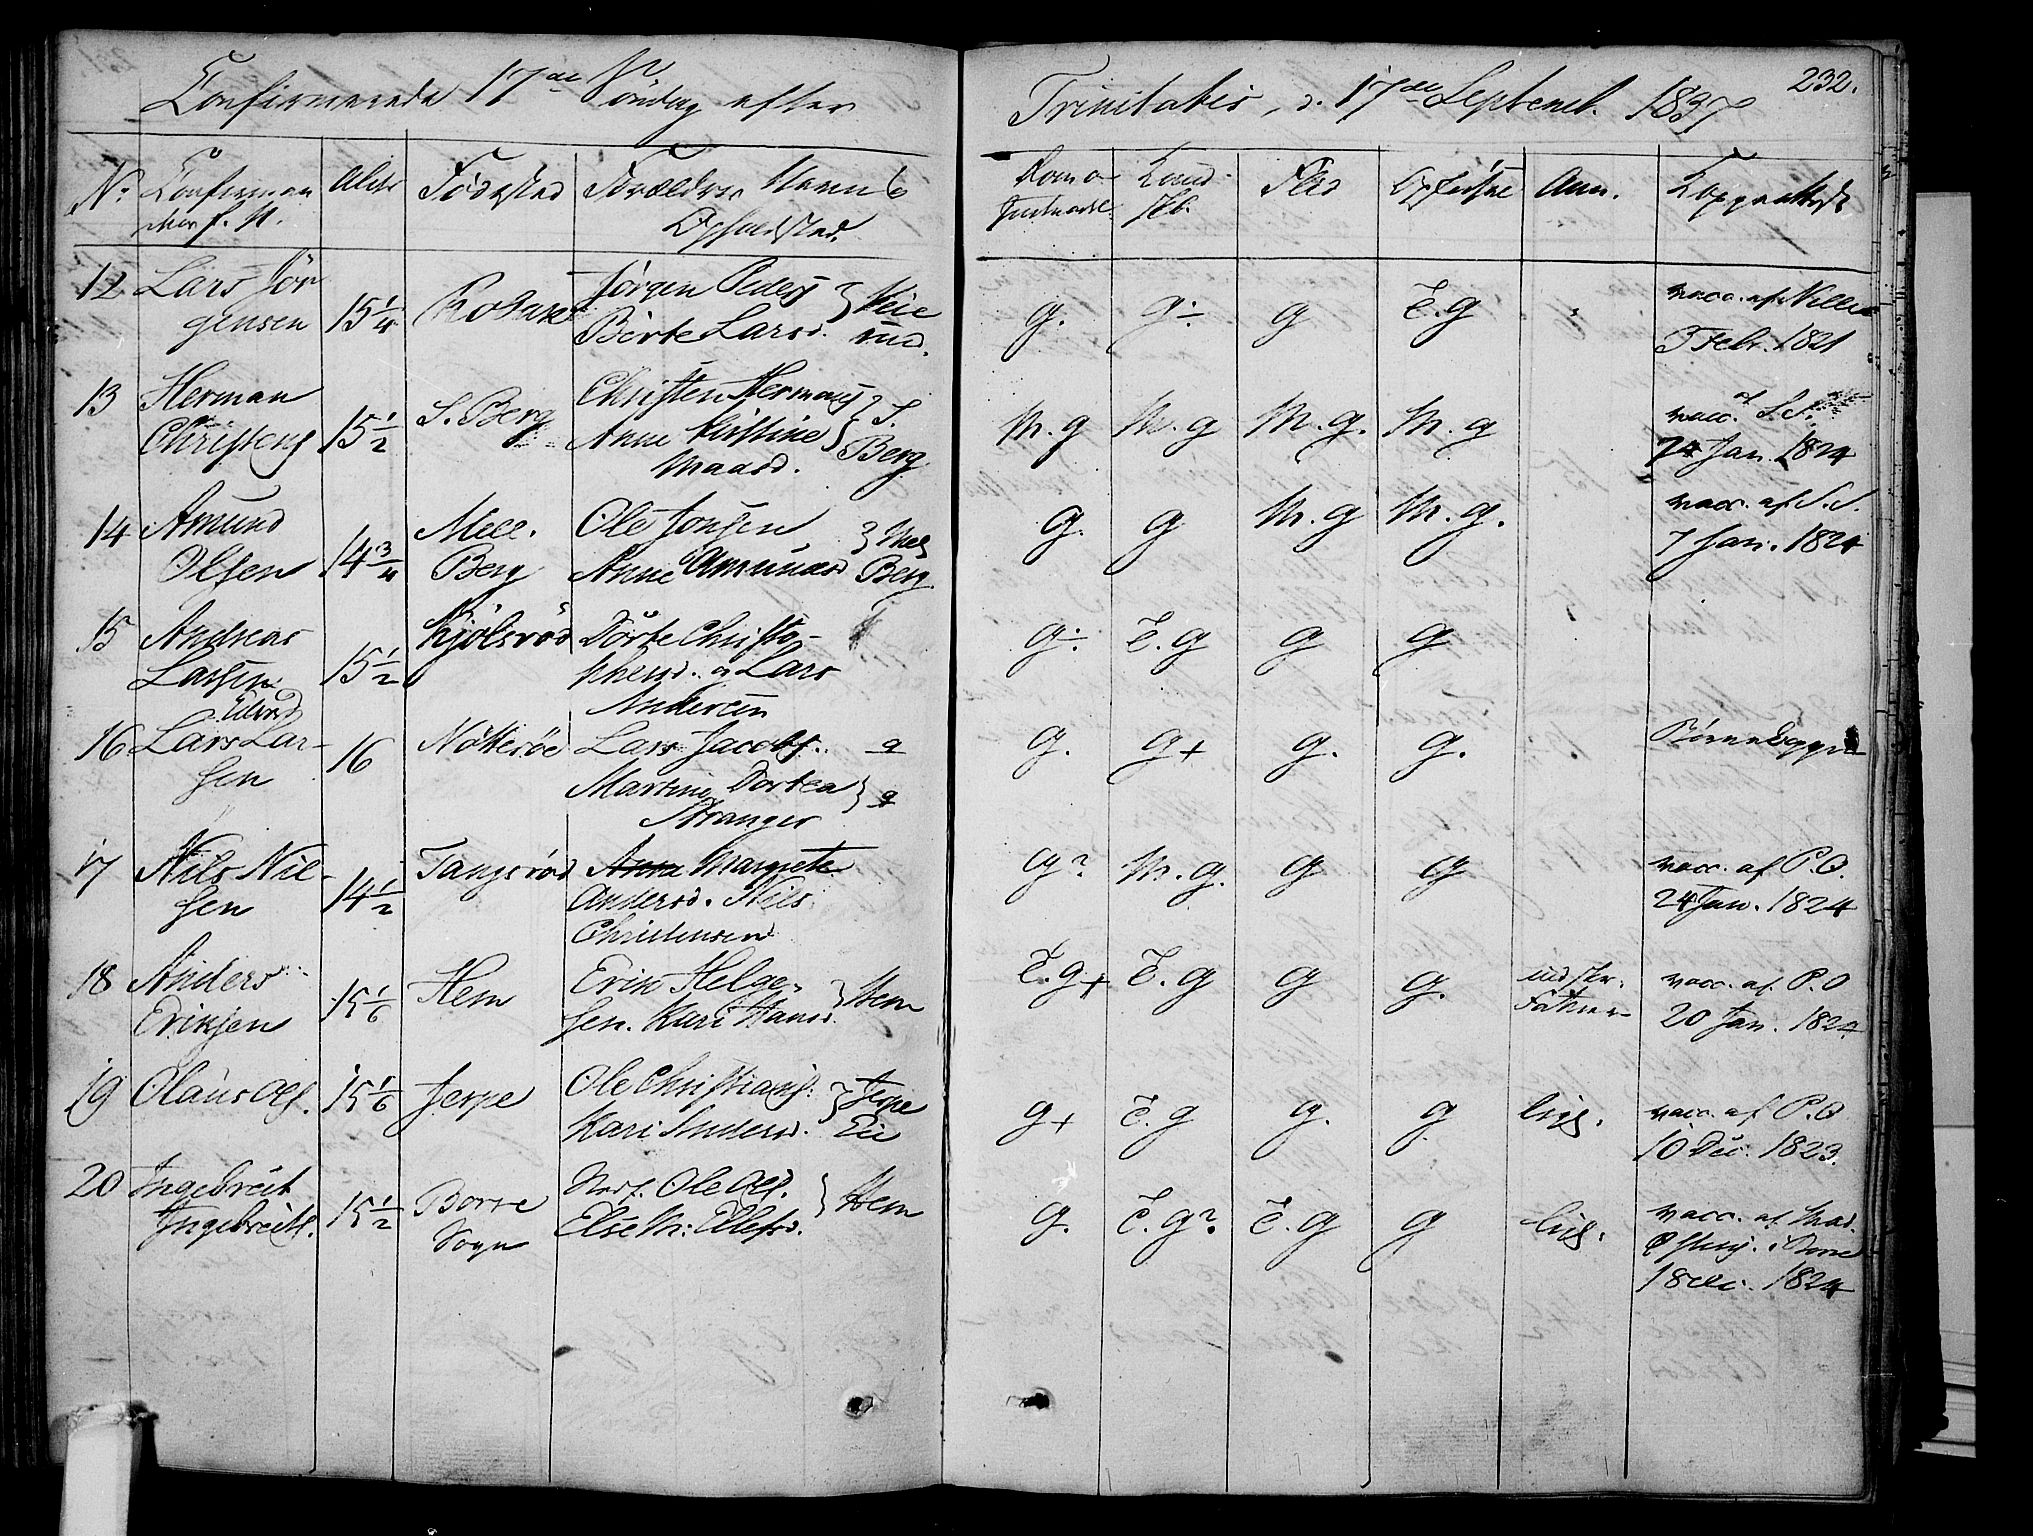 232.
Confirmerede 17de Søndag efter Trinitatis, d. 17de Septemb. 1837
No. Alder Fødested Forældres Navn &
Opholdsted.
Kund- Flid Opførsel Anm. Koppeattest
12 Lars Jør
gensen 15 1/4
Jørgen Peders
Birte Larsd.
g. g÷ g T.g
vacc. af
Febr. 1821
13 Herman
Christens 15 1/2 S. Berg
Christen Hermans
Anne Kirstine
Maasd. } S.
Berg
M.g M.g M.g. M.g
vacc. af
24 Jan. 1824
14 Amund
Olsen 14 3/4 Mell.
Berg
Ole Jonsen
Anne Amundsd } Mel
Berg
g. g M.g M.g.
vacc. af S.S.
7 Jan. 1824
15 Andreas
Larsen 15 1/2 Kjølsrød
Dørte Christo-
phersd. og Lars
Andersen
g÷ T.g g g
16 Lars
Edvard
Lar-
sen 16 Nøtterøe
Lars Jacobs.
Martine Dortea
Stranger
g. g+ g. g.
17 Nils Nil-
sen 14 1/2 Tangsrød
Anne Margrete
Andersd. Nils
Christensen
g? M.g. g g
vacc. af P.O.
24 Jan. 1824
18 Anders
Eriksen 15 1/6 Hem
Erik Helge-
sen. Kari Hansd. } Hem
T.g+ T.g g g.
vacc. af P.O
20 Jan. 1824
19 Olaus Ols. 15 1/6 Jerpe
Ole Christians.
Kari Andersd. } Jerpe
Eie
g+ T.g g. g
vacc. af P.O
10 Dec. 1823.
20 Ingebreit
Ingebreits. 15 1/2 Borre
Sogn
Ole Ols.
Else M. } Hem
g. T.g? T.g g
vacc. af Mad.
i Borre
1824